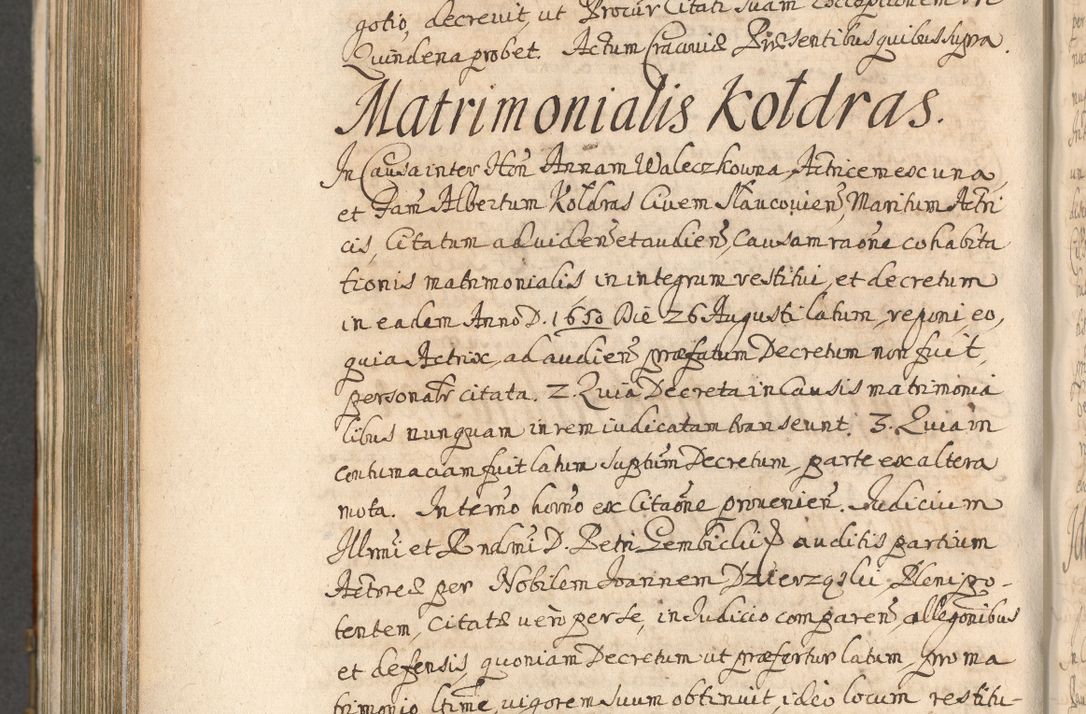 gotio, decrevit, ut Procur Citati suam
Quindena probet. Actum Cracoviæ Præsentibus quibus supra.
Matrimonialis Kołdras.
In Causa inter Hon̄ Annam Waleczkowna Actricem ex una,
et Fam̄ Albertum Kołdras Civem Slaucovien̄, Maritum Actri
cis, Citatum ad viden̄ et audien̄, Causam raōne cohabita
tionis matrimonialis in integrum restitui, et decretum
in eadem Anno D. 1650 Die 26 Augusti latum, reponi, eo,
quia Actrix, ad audien̄ præfatum Decretum non fuit,
personalr̄ citata. 2. Quia Decreta in Causis matrimonia
libus nunquam in rem iudicatam transeunt. 3. Quia in
contumaciam fuit latum suptūm Decretum, parte ex altera
mota. In termo horno ex Citaōne provenien̄. Iudicium
Illrmi et Rndmi D. Petri Gembicki auditis partium
Actoreæ per Nobilem Joannem Dzierzqslu, Plenipo-
tentem, Citatæ vero per se, in Judicio comparen̄, allegōnibus
et defensis, quoniam Decretum ut præfertur latum, pro ma
trimonio ltime, vigorem suum obtinuit, ideo locum restitu-